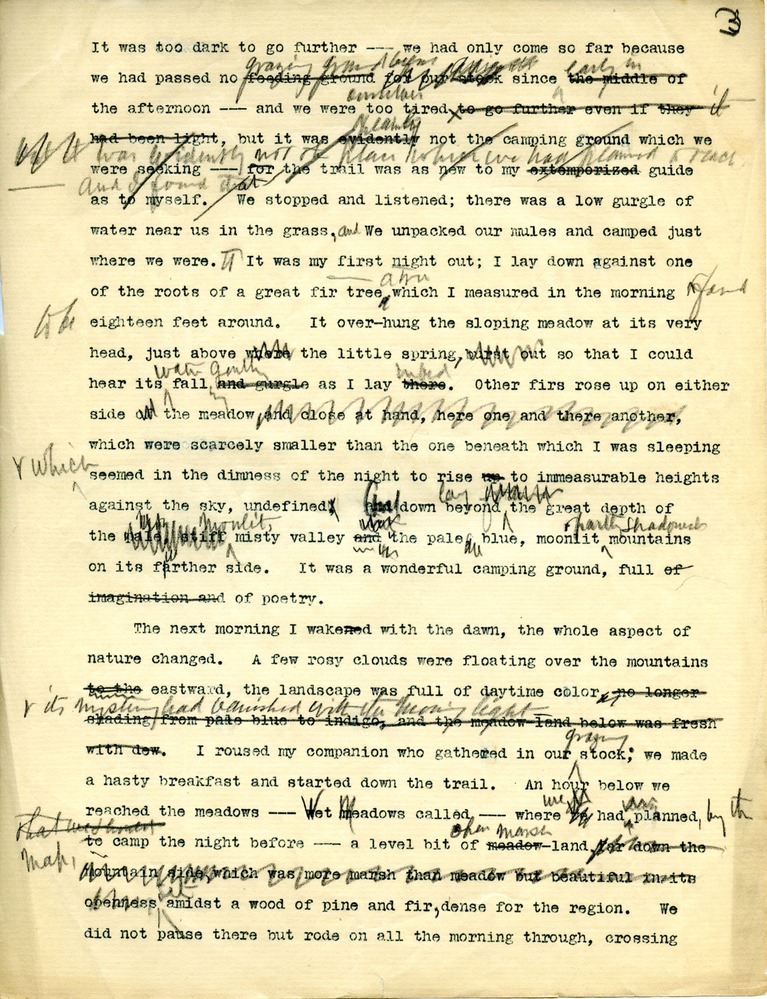 3
It was too dark to go further --- we had only come so far because
grazing ground early in
we had passed no feeding ground for our stock since the middle of
ourselves
the afternoon --- and we were too tired to go further even if they it
clearly
had been light, but it was evidently not the camping ground which we
It was evidently not the place which we had planned to reach
were seeking --- for the trail was as new to my extemporized guide
and I found that
as to myself. We stopped and listened; there was a low gurgle of
water near us in the grass, and We unpacked our mules and camped just
where we were. It was my first night out; I lay down against one
of the roots of a great fir tree, which I measured in the morning & found
to be
eighteen feet around. It over-hung the sloping meadow at its very
head, just above where the little spring, burst out so that I could
water gently
hear its fall and gurgle as I lay there. Other firs rose up on either
side of the meadow, and close at hand, here one and there another,
which were scarcely smaller than the one beneath which I was sleeping
& which
seemed in the dimness of the night to rise up to immeasurable heights
lay
against the sky, undefined; and down beyond the great depth of
moonlit partly shadowed
the pale, stiff misty valley and the pale blue, moonlit mountains
on its farther side. It was a wonderful camping ground, full of
imagination and of poetry.
The next morning I wakened with the dawn, the whole aspect of
nature changed. A few rosy clouds were floating over the mountains
to the eastward, the landscape was full of daytime color, no longer
& its mystery had vanished with the morning light
shading from pale blue to indigo, and the meadow-land below was fresh
grazing
with dew. I roused my companion who gathered in our stock; we made
a hasty breakfast and started down the trail. An hour below we
we
reached the meadows --- Wet Meadows called --- where we had planned, by the
map,
open marsh
to camp the night before --- a level bit of meadow-land, far down the
mountain side, which was more marsh than meadow but beautiful in its
openness amidst a wood of pine and fir, dense for the region. We
did not pause there but rode on all the morning through, crossing